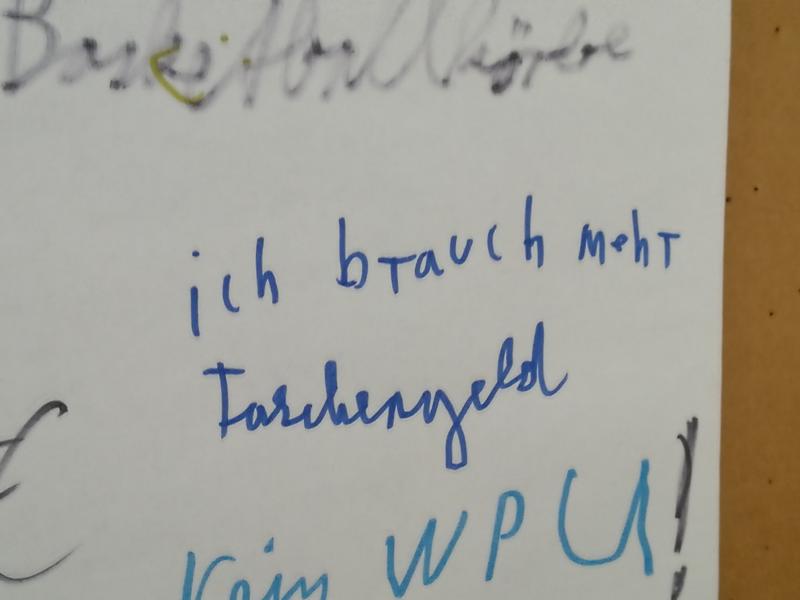 Basketballkörbe
ich brauch mehr
Taschengeld
Kein WPU!